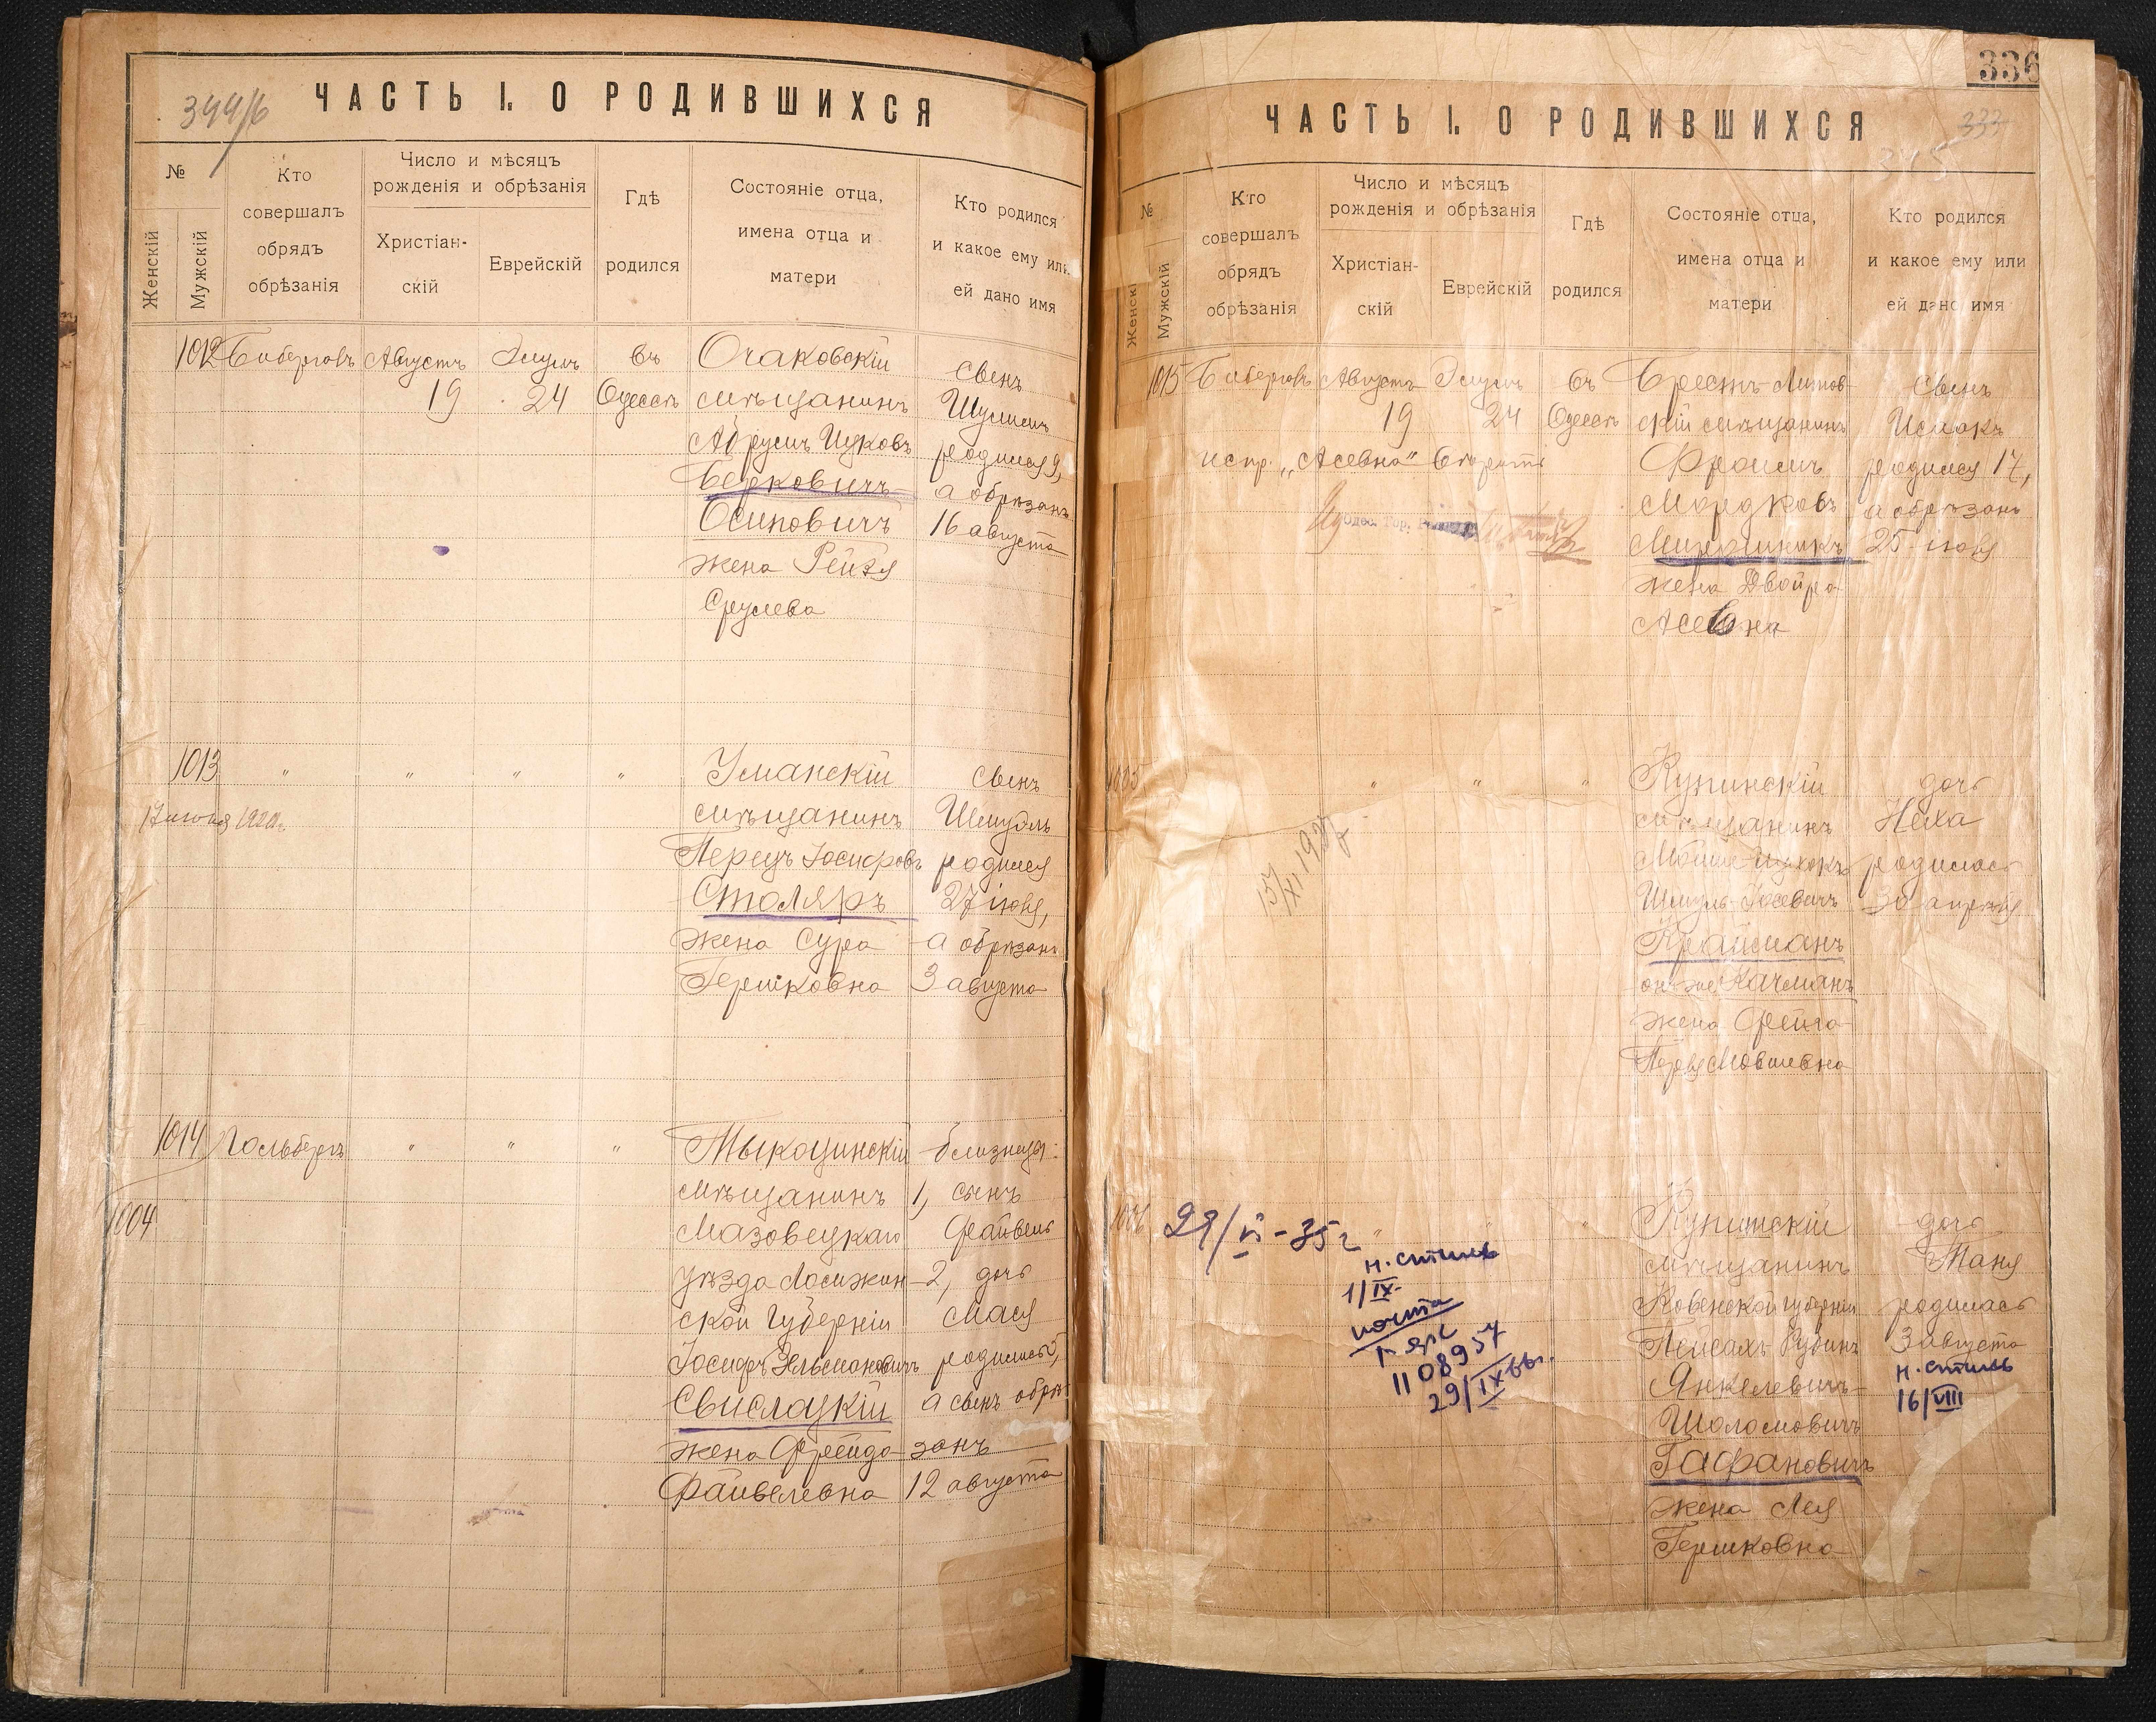 344/б
ЧАСТЬ I. О РОДИВШИХСЯ
№
Женскій
Мужскій
Кто
совершалъ
обрядъ
обрѣзанія
Число и мѣсяцъ
рожденія и обрѣзанія
Христіан-
скій
Еврейскій
Гдѣ
родился
Состояніе отца,
имена отца и
матери
Кто родился
и какое ему или
ей дано имя
1012
Августъ
19
24
въ
Одессѣ
Очаковскій
мѣщанинъ
Ицковъ
Берковичъ
Осиповичъ
жена Рейзя
Срулева
сынъ
родился 9,
а обрѣзанъ
16 августа
1013
"
"
"
"
1920г.
Уманскій
мѣщанинъ
Перецъ Іосифовъ
Столяръ
жена Сура
Гершковна
сынъ
Шмуль
родился
27 іюля,
а обрѣзанъ
3 августа
1014
1004
Гольбергъ
"
"
"
Тыкоцинскій
мѣщанинъ
Мазовецкаго
уѣзда Ломжин-
ской губерніи
Іосифъ
Свислоцкій
жена Фрейда
Файвелевна
близнецы:
1, сынъ
Файвель
2, дочь
Мася
родились,
а сынъ обрѣ-
занъ
12 августа
336
333
345
ЧАСТЬ I. О РОДИВШИХСЯ
№
Женскі
Мужскій
Кто
совершалъ
обрядъ
обрѣзанія
Число и мѣсяцъ
рожденія и обрѣзанія
Христіан-
скій
Еврейскій
Гдѣ
родился
Состояніе отца,
имена отца и
матери
Кто родился
и какое ему или
ей дано имя
1015
Августъ
19
24
въ
Одессѣ
испр. „Асевна" вѣрить
Брестъ-Литов-
скій мѣщанинъ
Фроимъ
Мордковъ
жена Двойра
Асевна
сынъ
Исаакъ
родился 17,
а обрѣзанъ
25 іюля
1005
"
"
"
Купинскій
мѣщанинъ
Крайманъ
онъ же Качманъ
жена Фейга
дочь
Неха
родилась
30 апрѣля
1006
29/VI-35 г
"
н. стиль
1/IX-
почта
1108957
29/IX
мѣщанинъ
Ковенской губерніи
Пейсахъ Рувинъ
Янкелевичъ
Шоломовичъ
Гафановичъ
жена Лея
Гершковна
дочь
Таня
родилась
3 августа
н. стиль
16/VIII